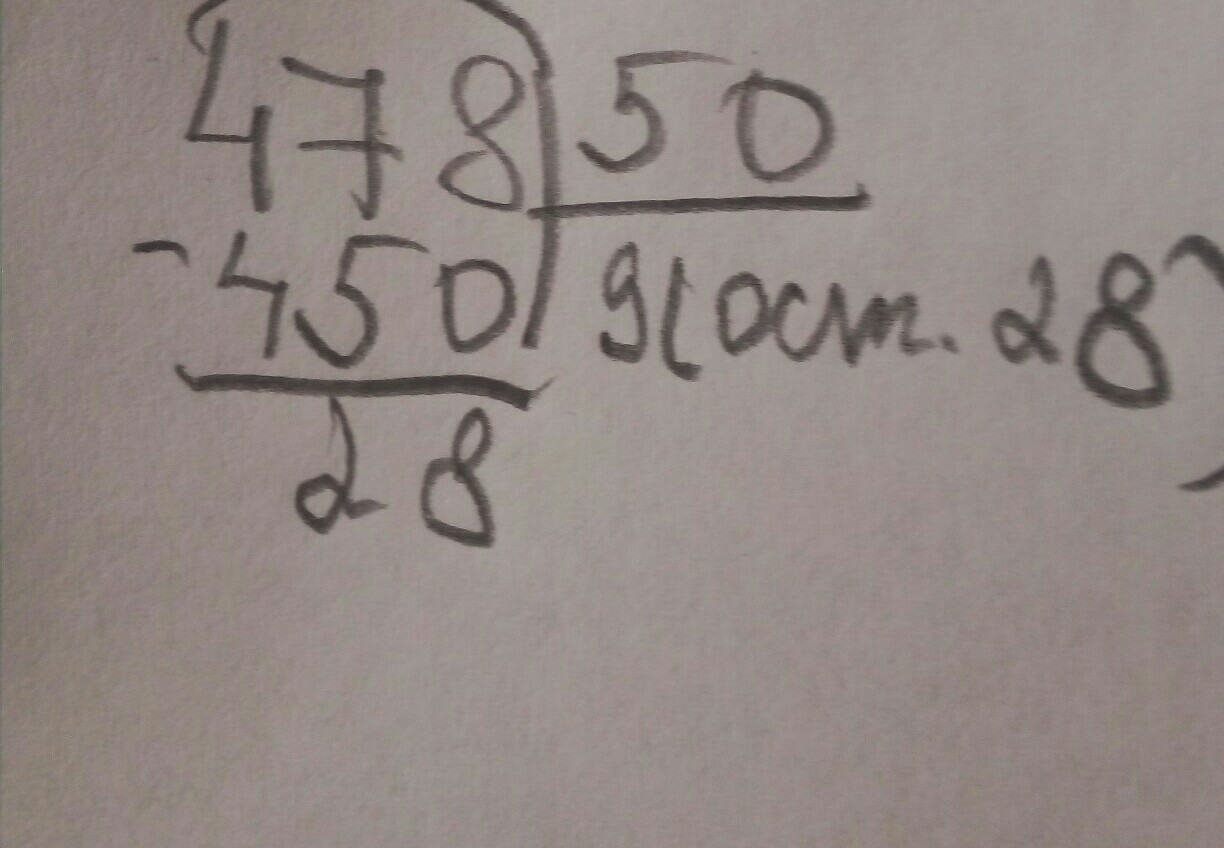 478 50
-450 9(ост. 28)
28